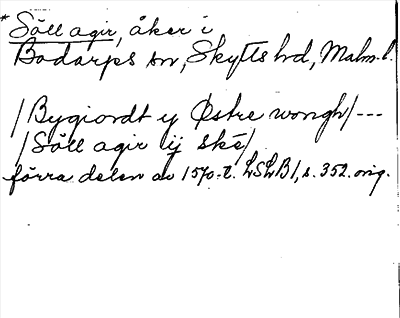 * Söll agir, åker i
Bodarps sn, Skytts hd, Malm. l.
/Bygiordt y Østre wongh/---
/Söll agir ij ske/
förra delen av 1570-t. LSLB 1, s. 352. orig.